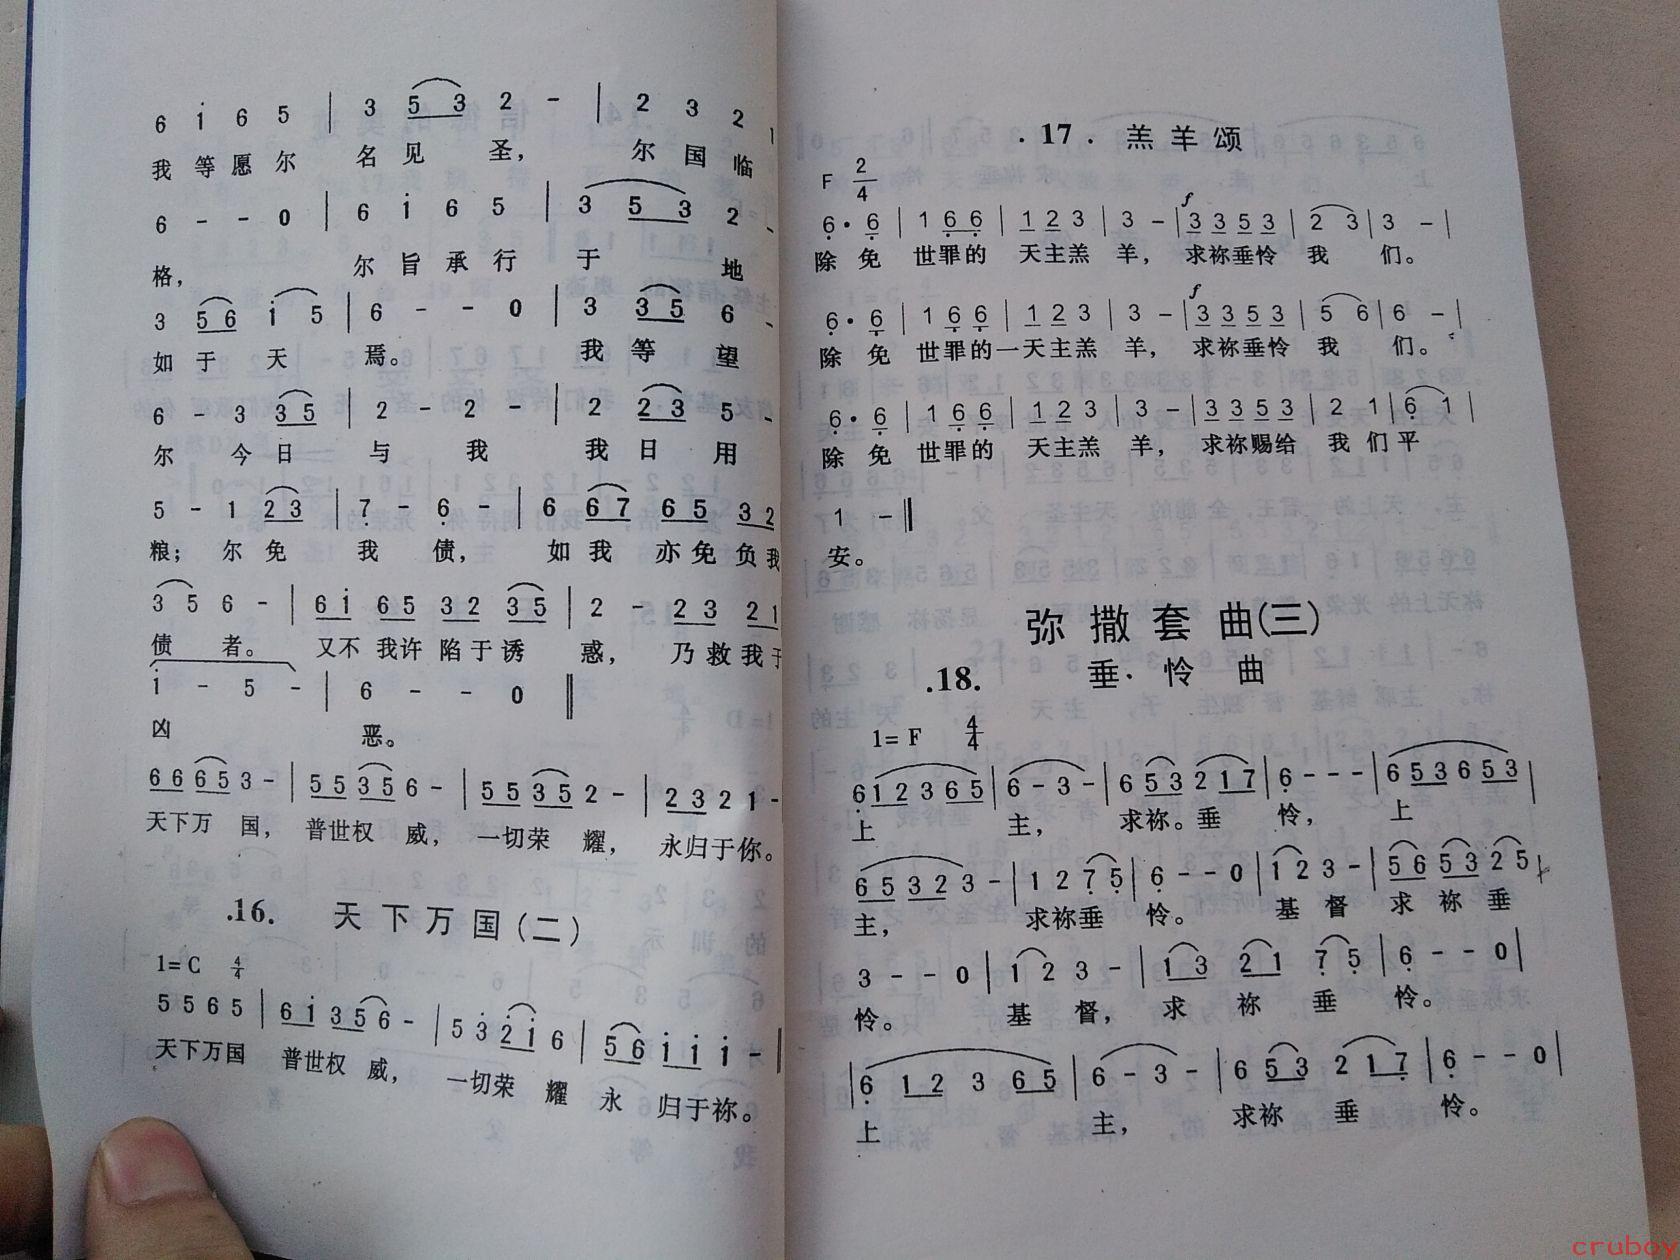 6 i 6 5 | 3 5 3 2 - | 2 3 2 1
我 等 愿 尔 名 见 圣, 尔 国 临
6 - - 0 | 6 i 6 5 | 3 5 3 2 -
格, 尔 旨 承 行 于 地
3 5 6 i 5 | 6 - - 0 | 3 3 5 6 -
如 于 天 焉。 我 等 望
6 - 3 3 5 | 2 - 2 - | 2 2 3 5 -
尔 今 日 与 我 我 日 用
5 - 1 2 3 | 7 - 6 - | 6 6 7 6 5 3 2
粮; 尔 免 我 债, 如 我 亦 免 负 我
3 5 6 - | 6 i 6 5 3 2 3 5 | 2 - 2 3 2 1
债 者。 又不 我许 陷 于 诱 惑, 乃 救 我 于
i - 5 - | 6 - - 0 ‖
凶 恶。
6 6 6 5 3 - | 5 5 3 5 6 - | 5 5 3 5 2 - | 2 3 2 1 -
天下万 国, 普世权 威, 一切荣 耀, 永归于你。
.16. 天 下 万 国 (二)
1=C 4/4
5 5 6 5 | 6 i 3 5 6 - | 5 3 2 i 6 | 5 6 i i i - |
天下万国 普世权 威, 一切荣 耀 永 归于祢。
.17. 羔 羊 颂
F 2/4
f
6· 6 | 1 6 6 | 1 2 3 | 3 - | 3 3 5 3 | 2 3 | 3 - |
除 免 世罪的 天主羔 羊, 求祢垂怜 我 们。
f
6· 6 | 1 6 6 | 1 2 3 | 3 - | 3 3 5 3 | 5 6 | 6 - |
除 免 世罪的一天主羔 羊, 求祢垂怜 我 们。
6· 6 | 1 6 6 | 1 2 3 | 3 - | 3 3 5 3 | 2 1 | 6 1 |
除 免 世罪的 天主羔 羊, 求祢赐给 我 们 平
1 - ‖
安。
弥 撒 套 曲(三)
.18. 垂· 怜 曲
1=F 4/4
6 1 2 3 6 5 | 6 - 3 - | 6 5 3 2 1 7 | 6 - - - | 6 5 3 6 5 3 |
上 主, 求祢。垂 怜, 上
6 5 3 2 3 - | 1 2 7 5 | 6 - - 0 | 1 2 3 - | 5 6 5 3 2 5 |
主, 求祢垂 怜。 基 督 求 祢 垂
3 - - 0 | 1 2 3 - | 1 3 2 1 7 5 | 6 - - 0 |
怜。 基 督, 求 祢 垂 怜。
| 6 1 2 3 6 5 | 6 - 3 - | 6 5 3 2 1 7 | 6 - - 0 |
上 主, 求祢 垂 怜。
cruboy